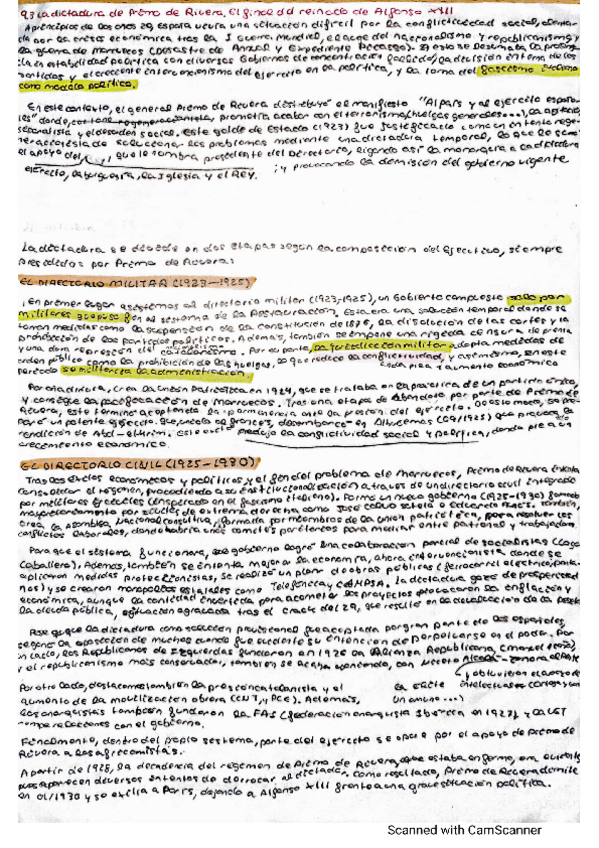 9.3 La dictadura de Primo de Rivera. El final del reinado de Alfonso XIII
A principios de los años 20, España vivía una situación difícil por la conflictividad social,
por la crisis económica tras la I Guerra Mundial, el auge del nacionalismo y republicanismo y
la guerra de Marruecos (Desastre de Annual y Expediente Picasso). A esto se
la inestabilidad política con diversos Gobiernos de concentración la división interna de los
partidos y el creciente intervencionismo del ejército en la política, y la toma del fascismo italiano
como modelo político.
En este contexto, el general Primo de Rivera distribuyó el manifiesto "Al país y al ejército españo-
les" donde, prometía acabar con el terrorismo, huelgas generales...), la
separatista y el desorden social. Este golde de Estado (1923) fue justificado como un intento rege-
neracionista de solucionar los problemas mediante una dictadura temporal, lo que le
el apoyo del que le nombra presidente del Directorio, ligando así la monarquía a la dictadura
ejército, la burguesía, la Iglesia y el REY. ; y provocando la demisión del gobierno vigente
La dictadura se divide en dos etapas según la composición del Ejecutivo, siempre
presididos por Primo de Rivera:
EL DIRECTORIO MILITAR (1923-1925)
En primer lugar asistimos al directorio militar (1923-1925), un Gobierno compuesto solo por
militares en el sistema de la Restauración. Esta era una solución temporal donde se
toman medidas como la suspensión de la constitución de 1876, la disolución de las cortes y la
prohibición de los partidos políticos. Además, también se impone una rígida censura de prensa
y una dura represión del catalanismo. Por su parte, la jurisdicción militar adopta medidas de
orden público como la prohibición de las huelgas, lo que reduce la conflictividad, y asimismo, en este
periodo se militariza la administración. aumento económico
Por otra dirría, crea la Unión Patriótica en 1924, que se trataba en la práctica de un partido único,
y consigue la pacificación de Marruecos. Tras una etapa de abandono por parte de Primo de
Rivera, este termina aceptando la permanencia ante la presión del ejército. De esta
paró un potente ejército que, unido al francés, desembarcó en Alhucemas (09/1925) que provocó la
rendición de Abd-el-Krim. Este éxito redujo la conflictividad social y política, dando pie a un
crecimiento económico.
EL DIRECTORIO CIVIL (1925-1930)
Tras los éxitos económicos y políticos, y el fin del problema de Marruecos, Primo de Rivera intenta
consolidar el régimen, procediendo a su institucionalización a través de un directorio civil integrado
por militares y civiles (inspirado en el fascismo italiano). Formó un nuevo gobierno (1925-1930) formado
mayoritariamente por civiles de extrema derecha como José Calvo Sotelo o Eduardo Aunós. También,
crea la Asamblea Nacional Consultiva, formada por miembros de la unión patriótica, para resolver los
conflictos laborales, donde habría unos comités paritarios para mediar entre patronal y trabajadores.
Para que el sistema funcionara, el gobierno logró una colaboración parcial de socialistas (Largo
Caballero). Además, también se intenta mejorar la economía, ahora intervencionista donde se
aplicaron medidas proteccionistas, se realizó un plan de obras públicas (ferrocarril eléctrico,
nos) y se crearon monopolios estatales como Telefónica y CAMPSA. La dictadura gozó de prosperidad
económica, aunque la cantidad invertida para acometer los proyectos provocaron la inflación y
la deuda pública, situación agravada tras el crack del 29, que resultó en la devaluación de la peseta
Pese a que la dictadura como solución provisional fue aceptada por gran parte de los españoles,
según la oposición de muchos cuando fue evidente su intención de perpetuarse en el poder. Por
un lado, los Republicanos de Izquierdas fundaron en 1926 la Alianza Republicana
y el republicanismo más conservador, también se acaba uniendo, con Niceto Alcalá-Zamora
obtuvieron el apoyo de
Por otro lado, destacamos también la presión catalanista y el la élite intelectuales como
aumento de la movilización obrera (CNT, y PCE). Además, Unamuno...)
los anarquistas también fundaron la FAI (federación anarquista Ibérica en 1927) y la UGT
rompe relaciones con el gobierno.
Finalmente, dentro del propio sistema, parte del ejército se opone por el apoyo de Primo de
Rivera a los africanistas.
A partir de 1928, la decadencia del régimen de Primo de Rivera, que estaba enfermo, era evidente
pues aparecen diversos intentos de derrocar al dictador. Como resultado, Primo de Rivera dimite
en 01/1930 y se exilia a París, dejando a Alfonso XIII frente a una grave situación política.
Scanned with CamScanner